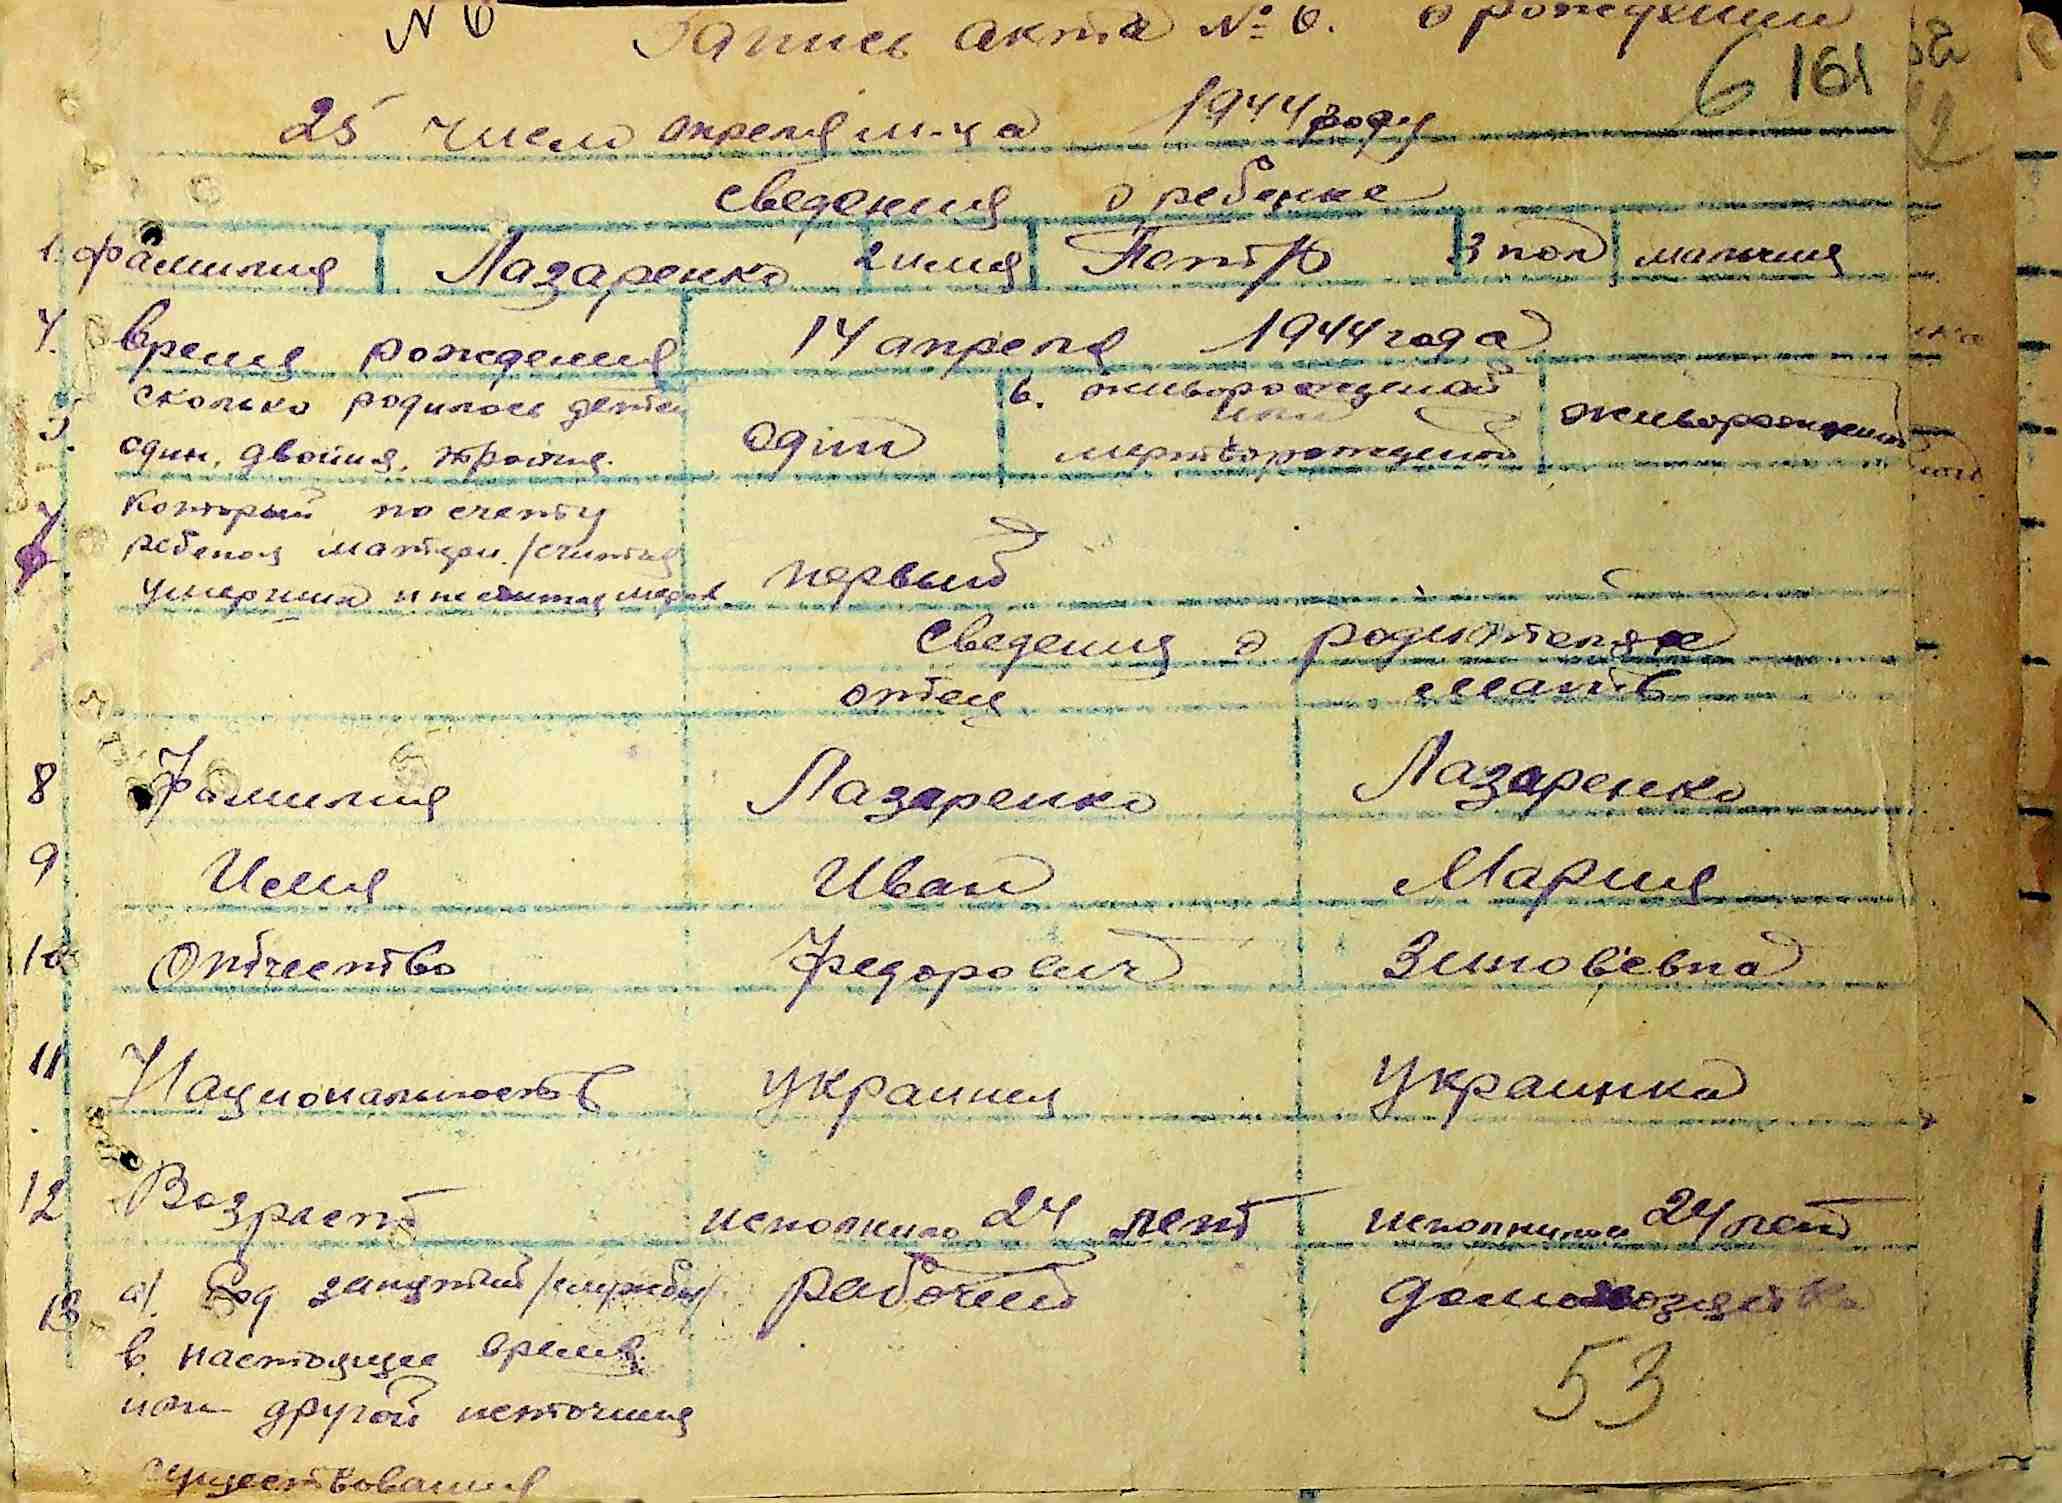 N 6 Запись акта № 6. о рождении
6 161
25 числа апреля м-ца 1944 году
сведения о ребенке
1. фамилия Лазаренко 2 имя Петр 3 пол мальчик
4. время рождения 14 апреля 1944 года
5. сколько родилось детей
один, двойня, тройня. один
6. живорожденой
или
мертворожденой живорожденый
7. который по счету
ребенок матери /считая
умерших и не считая мертв. первый
сведения о родителях
отец мать
8 Фамилия Лазаренко Лазаренко
9 Имя Иван Мария
10 Отчество Федорович Зинов'евна
11 Национальность украинец украинка
12 Возраст исполнило 24 лет исполнилос 24 лет
13 а/. Род занятий /службы/ рабочий домохозяйка
в настоящее время
или другой источник
существования
53